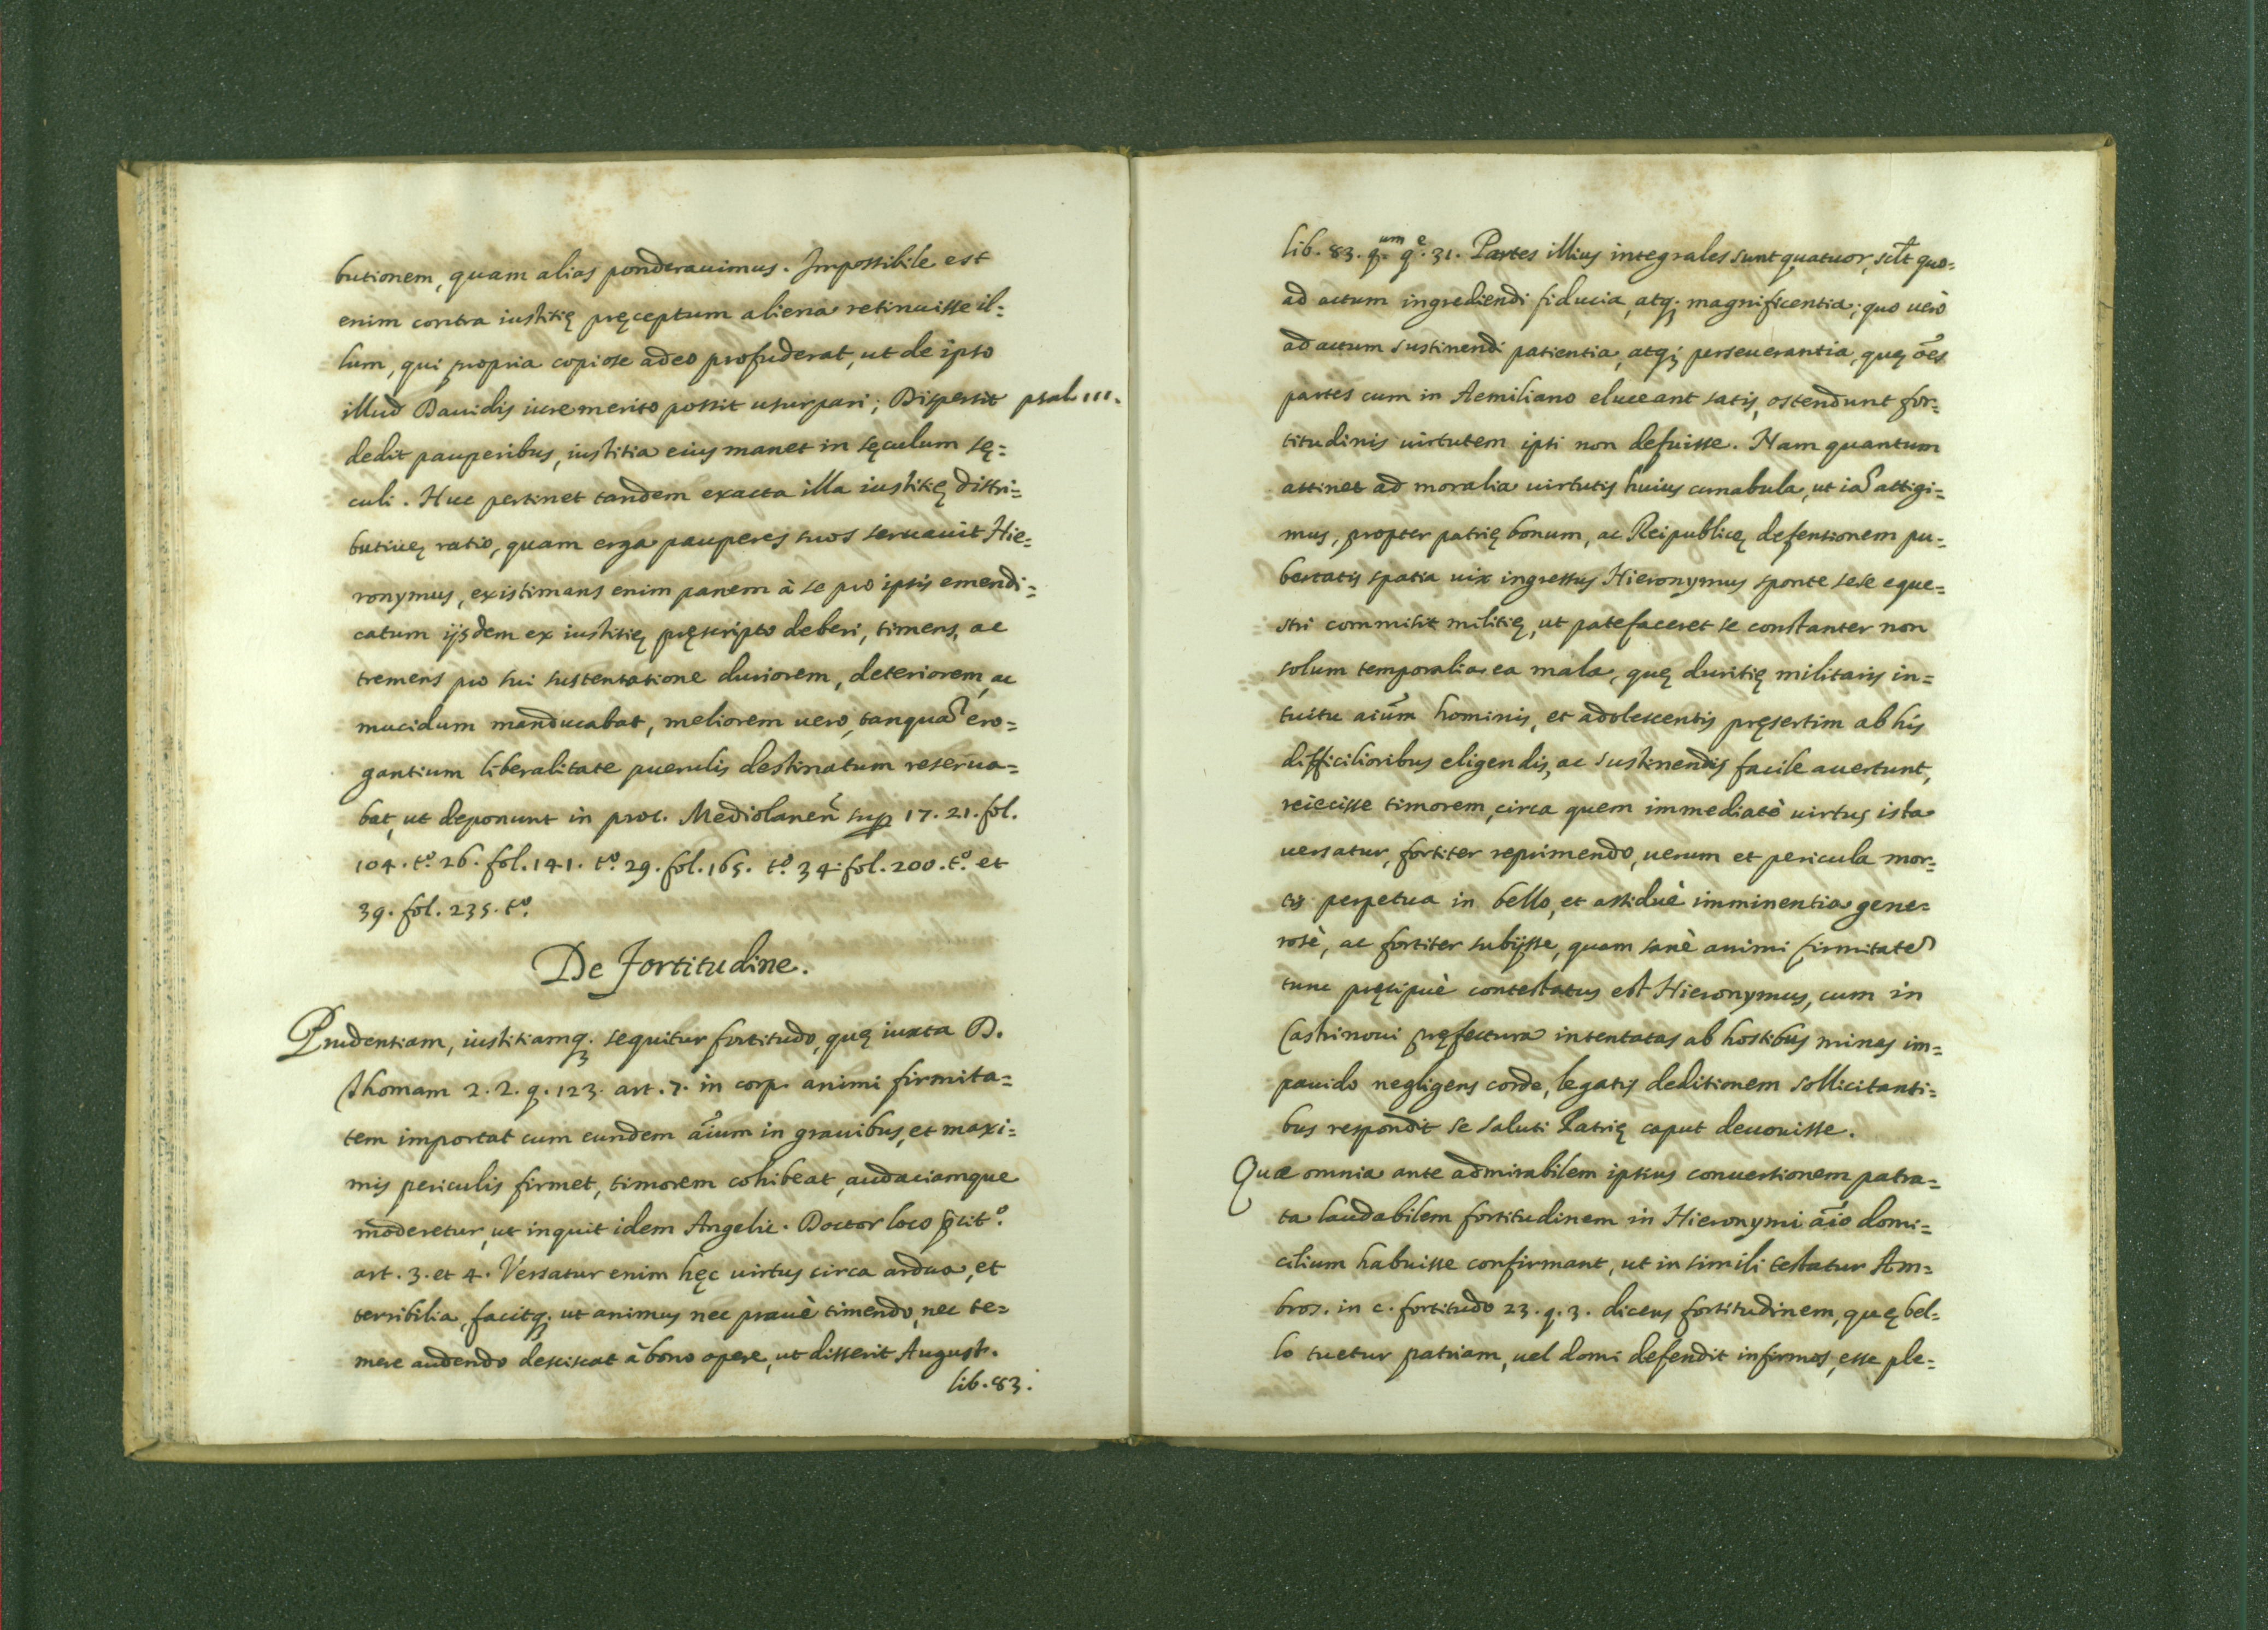 butionem, quam alias ponderauimus. Impossibile est
enim contra iustitię pręceptum aliena retinuisse il=
lum, qui propria copiose adeo profuderat, ut de ipso
illud Dauidis iure merito possit usurpari; Dispersit psal. 111.
dedit pauperibus, iustitia eius manet in sęculum sę=
culi. Huc pertinet tandem exacta illa iustitię distri=
butiuę ratio, quam erga pauperes suos seruauit Hie=
ronymus, existimans enim panem à se pro ipsis emendi=
catum ijsdem ex iustitię pręscripto deberi, timens, ac
tremens pro sui sustentatione duriorem, deteriorem, ac
mucidum manducabat, meliorem uero, tanqua᷃ ero=
gantium liberalitate puerulis destinatum reserua=
bat, ut deponunt in proc. Mediolanen᷃ sup 17. 21. fol.
104. t.º 26. fol. 141. t.º 29. fol. 165. t.º 34. fol. 200. t.º et
39. fol. 235. t.º
De Fortitudine.
Prudentiam, iustitiamq; sequitur fortitudo, quę iuxta D.
Thomam 2. 2. q. 123. art. 7. in corp. animi firmita=
tem importat cum eundem ãium in grauibus, et maxi=
mis periculis firmet, timorem cohibeat, audaciamque
moderetur, ut inquit idem Angelic. Doctor loco p̃cit.º
art. 3. et 4. Versatur enim hęc uirtus circa ardua, et
terribilia, facitq; ut animus nec prauè timendo, nec te=
mere audendo desciscat à bono opere, ut disserit August.
lib. 83.
lib. 83. q.um q.e 31. Partes illius integrales sunt quatuor, scl̃t quo=
ad actum ingrediendi fiducia, atq; magnificentia; quo uerò
ad actum sustinendi patientia, atq; perseuerantia, quę ões
partes cum in Aemiliano eluceant satis, ostendunt for=
titudinis uirtutem ipsi non defuisse. Nam quantum
attinet ad moralia uirtutis huius cunabula, ut ia᷃ attigi=
mus, propter patrię bonum, ac Reipublicę defensionem pu=
bertatis spatia uix ingressus Hieronymus sponte sese eque=
stri commisit militię, ut patefaceret se constanter non
solum temporalia ea mala, quę duritię militaris in=
tuitu aiũm hominis, et adolescentis pręsertim ab his
difficilioribus eligendis, ac sustinendis facile auertunt,
reiecisse timorem, circa quem immediatè uirtus ista
uersatur, fortiter reprimendo, uerum et pericula mor=
tis perpetua in bello, et assiduè imminentia gene=
rosè, ac fortiter subijsse, quam sanè animi firmitate᷃
tunc pręcipuè contestatus est Hieronymus, cum in
Castrinoui pręfectura intentatas ab hostibus minas im=
pauido negligens corde, legatis deditionem sollicitanti=
bus respondit se saluti Patrię caput deuouisse.
Quæ omnia ante admirabilem ipsius conuersionem patra=
ta laudabilem fortitudinem in Hieronymi ãio domi=
cilium habuisse confirmant, ut in simili testatur Am=
bros. in c. fortitudo 23. q. 3. dicens fortitudinem, quę bel=
lo tuetur patriam, uel domi defendit infirmos, esse ple=